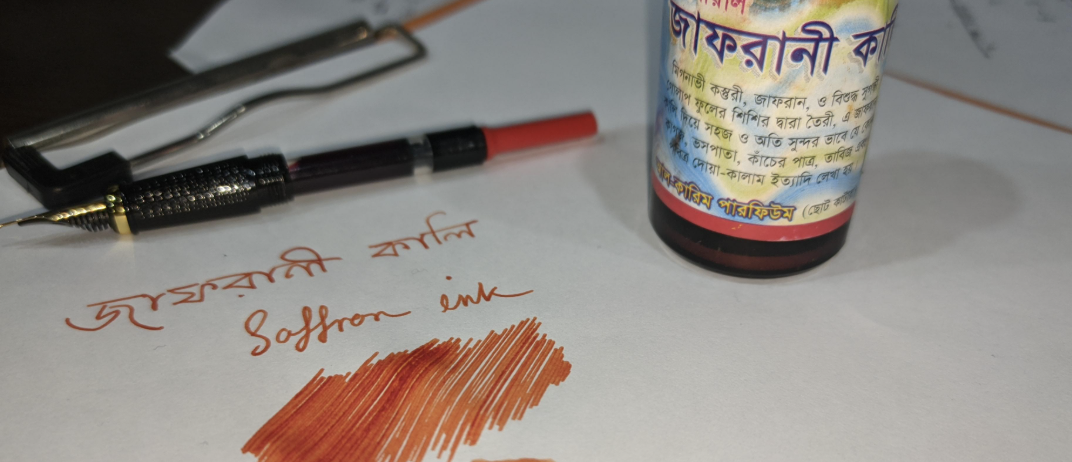 জাফরানী কা
মিগনাভী কস্তুরী, জাফরান, ও বিশুদ্ধ
গোলাপ ফুলের শিশির দ্বারা তৈরী, এ
দিয়ে সহজ ও অতি সুন্দর ভাবে যে
ভসপাতা, কাঁচের পাত্র, তাবিজ
দোয়া-কালাম ইত্যাদি লেখা
কারিম পারফিউম (ছোট
জাফরানী কালি
Saffron ink